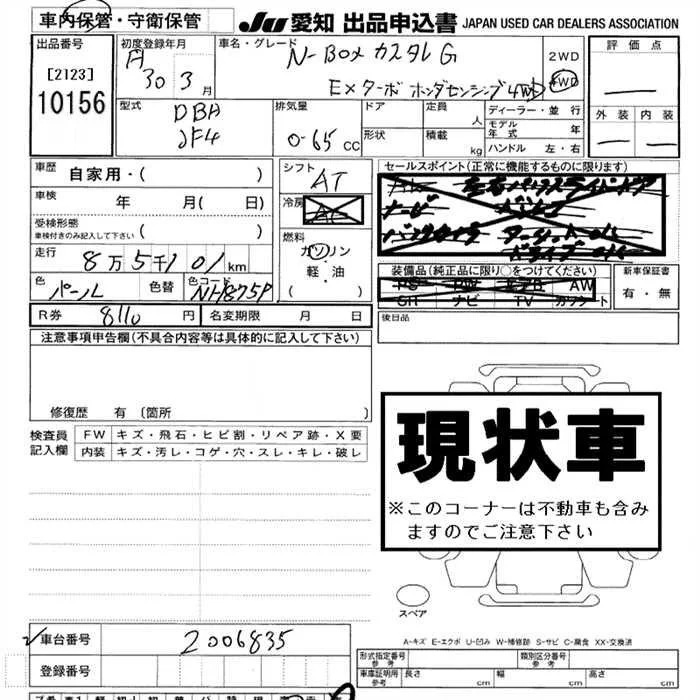 車内保管・守衛保管
JU 愛知 出品申込書 JAPAN USED CAR DEALERS ASSOCIATION
出品番号
[2123]
10156
初度登録年月
H 30 3 月
車名・グレード
N-BOX カスタム G
EX ターボ ホンダセンシング 4WD
2WD
4WD
評価点
外装 内装
型式
DBA
JF4
排気量
0.65 cc
ドア
形状
定員
人
積載
kg
ディーラー・並行
モデル年式 年
ハンドル 左・右
車歴 自家用・( )
車検 年 月( 日)
受検形態
車検付きのみ記入して下さい ( )
走行 8万5千101km
色 パール 色替 色コード NH875P
シフト
AT
冷房
AC
燃料
ガソリン
軽・油
( )
セールスポイント(正常に機能するものに限ります)
ナビ
装備品(純正品に限り○をつけてください)
PS PW エアB AW
SH ナビ TV ガソシート
新車保証書
有・無
R券 8110 円 名変期限 月 日
後日品
注意事項申告欄(不具合内容等は具体的に記入して下さい)
修復歴 有 (箇所 )
検査員
記入欄
FW キズ・飛石・ヒビ割・リペア跡・X要
内装 キズ・汚レ・コゲ・穴・スレ・キレ・破レ
現状車
※このコーナーは不動車も含み
ますのでご注意下さい
スペア
A-キズ E-エクボ U-凹み W-補修跡 S-サビ C-腐食 XX-交換済
車台番号 2006835
登録番号
形式指定番号
参考
類別区分番号
参考
車庫証明用
参考
長さ cm 幅 cm 高さ cm